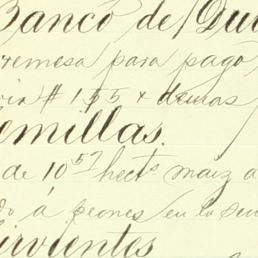 Banco de Du
remesa para pago
# 155 & demas
emillas.
de 10 57 hects maiz a
á peones en la
irvientes